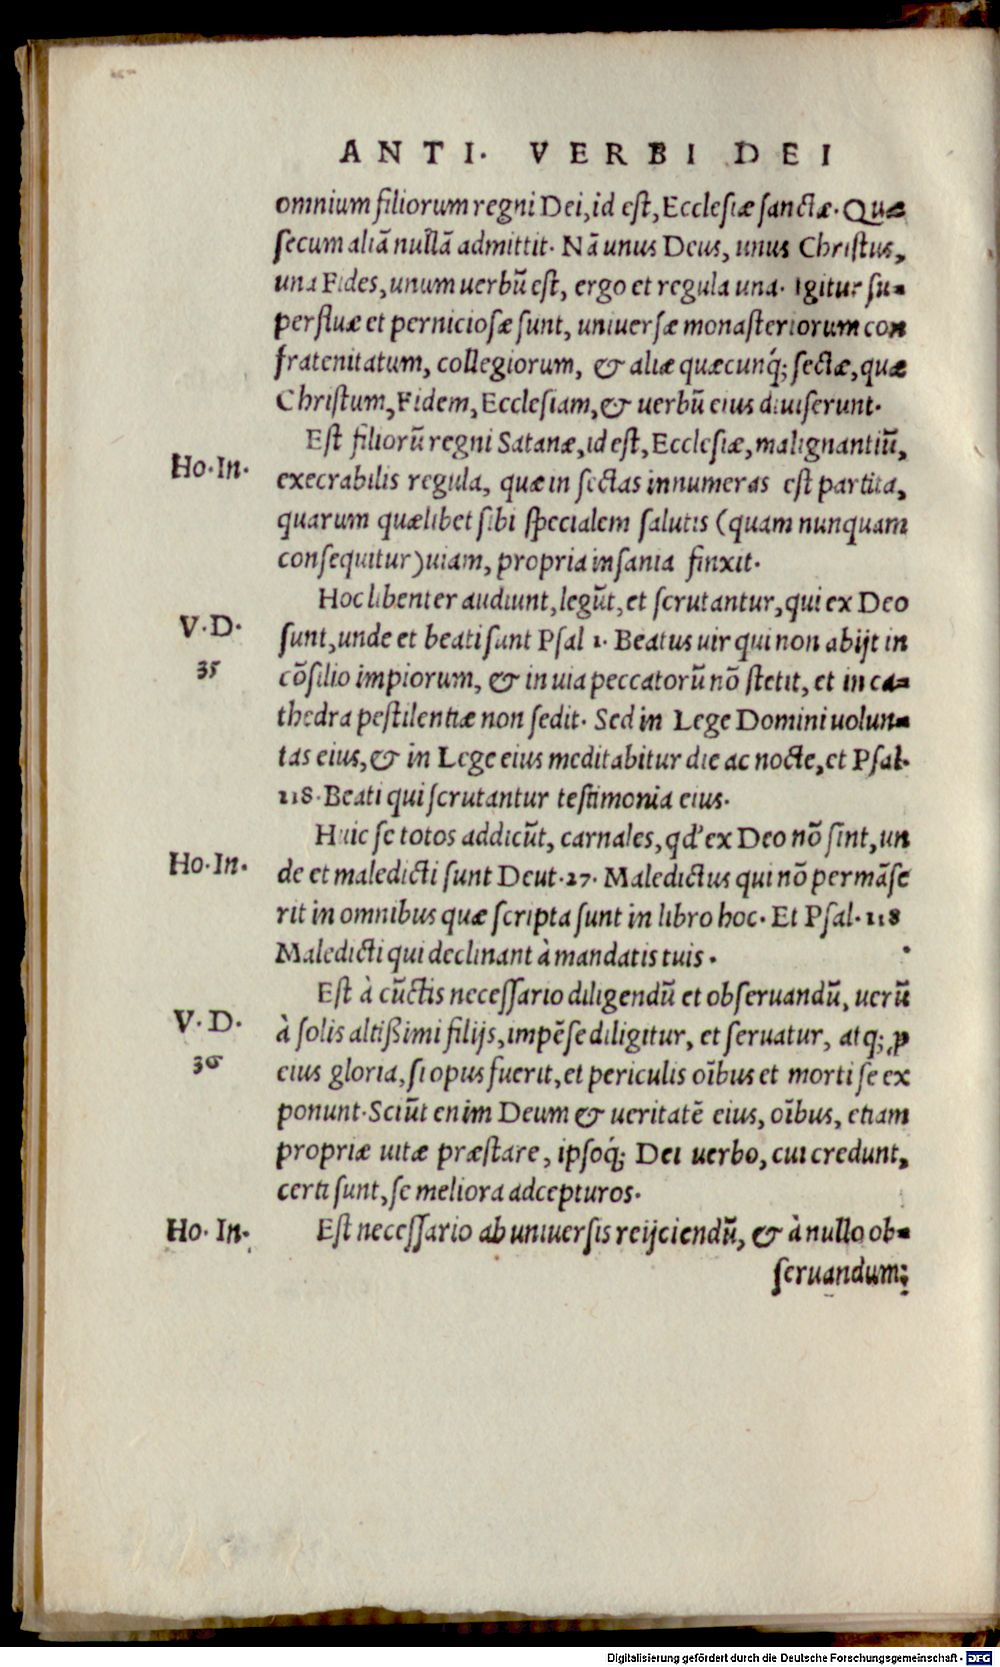 ANTI. VERBI DEI
omnium filiorum regni Dei, id est, Ecclesiæ sanctæ. Quæ-
secum aliā nullā admittit. Nā unus Deus, unus Christus,
una Fides, unum uerbū est, ergo et regula una. Igitur su-
perfluæ et perniciosæ sunt, uniuersæ monasteriorum con
fratenitatum, collegiorum, & aliæ quæcunq́; sectæ, quæ
Christum, Fidem, Ecclesiam, & uerbū eius diuiserunt.
Est filiorū regni Satanæ, id est, Ecclesiæ, malignantiū,
Ho. In.
execrabilis regula, quæ in sectas innumeras est partita,
quarum quælibet sibi specialem salutis (quam nunquam
consequitur) uiam, propria insania finxit.
Hoc libenter audiunt, legūt, et scrutantur, qui ex Deo
V. D.
35
sunt, unde et beati sunt Psal 1. Beatus uir qui non abijt in
cōsilio impiorum, & in uia peccatorū nō stetit, et in ca-
thedra pestilentiæ non sedit. Sed in Lege Domini uolun-
tas eius, & in Lege eius meditabitur die ac nocte, et Psal.
118. Beati qui scrutantur testimonia eius.
Huic se totos addicūt, carnales, qd' ex Deo nō sint, un
Ho. In.
de et maledicti sunt Deut. 27. Maledictus qui nō permāse
rit in omnibus quæ scripta sunt in libro hoc. Et Psal. 118
Maledicti qui declinant à mandatis tuis.
Est à cūctis necessario diligendū et obseruandū, uerū
V. D.
36
à solis altißimi filijs, impēse diligitur, et seruatur, atq; ꝓ
eius gloria, si opus fuerit, et periculis oībus et morti se ex
ponunt. Sciūt enim Deum & ueritatē eius, oībus, etiam
propriæ uitæ præstare, ipsoq́; Dei uerbo, cui credunt,
certi sunt, se meliora adcepturos.
Ho. In.
Est necessario ab uniuersis reijciendū, & à nullo ob-
seruandum;
Digitalisierung gefördert durch die Deutsche Forschungsgemeinschaft - DFG